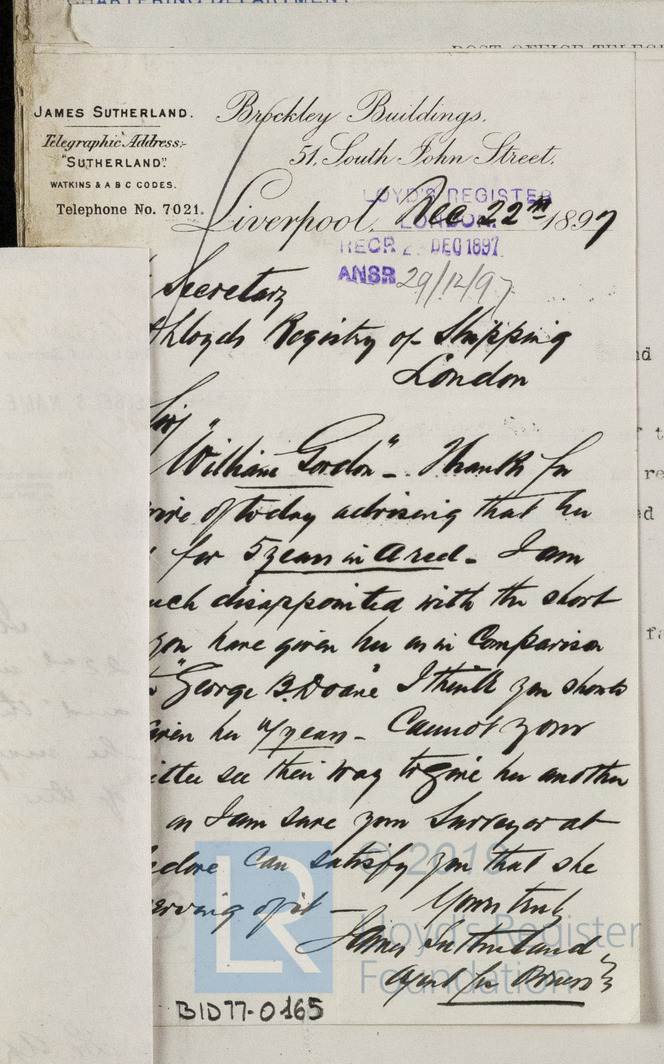 CHARTERING DEPARTMENT
JAMES SUTHERLAND.
Telegraphic Address:-
"SUTHERLAND".
WATKINS & A B C CODES.
Telephone No. 7021.
Brockley Buildings.
51, South John Street.
Liverpool, Dec 22nd 1897
LLOYD'S REGISTER
LONDON
RECR 2 DEC 1897
ANSR 29/12/97
Secretary
Lloyds Registry of Shipping
London
Sir
"William Gordon" - Thanks for
wire of today advising that her
for 5 years in A red - I am
much disappointed with the short
you have given her as in Comparison
"George B. Doane" I think you should
given her 7 years - Cannot your
ittee see their way to give her another
as I am sure your Surveyor at
can satisfy you that she
erving of it - Yours truly
James Sutherland
Agent for Owners
© 2019
LR Lloyd's Register
Foundation
BID77-0165